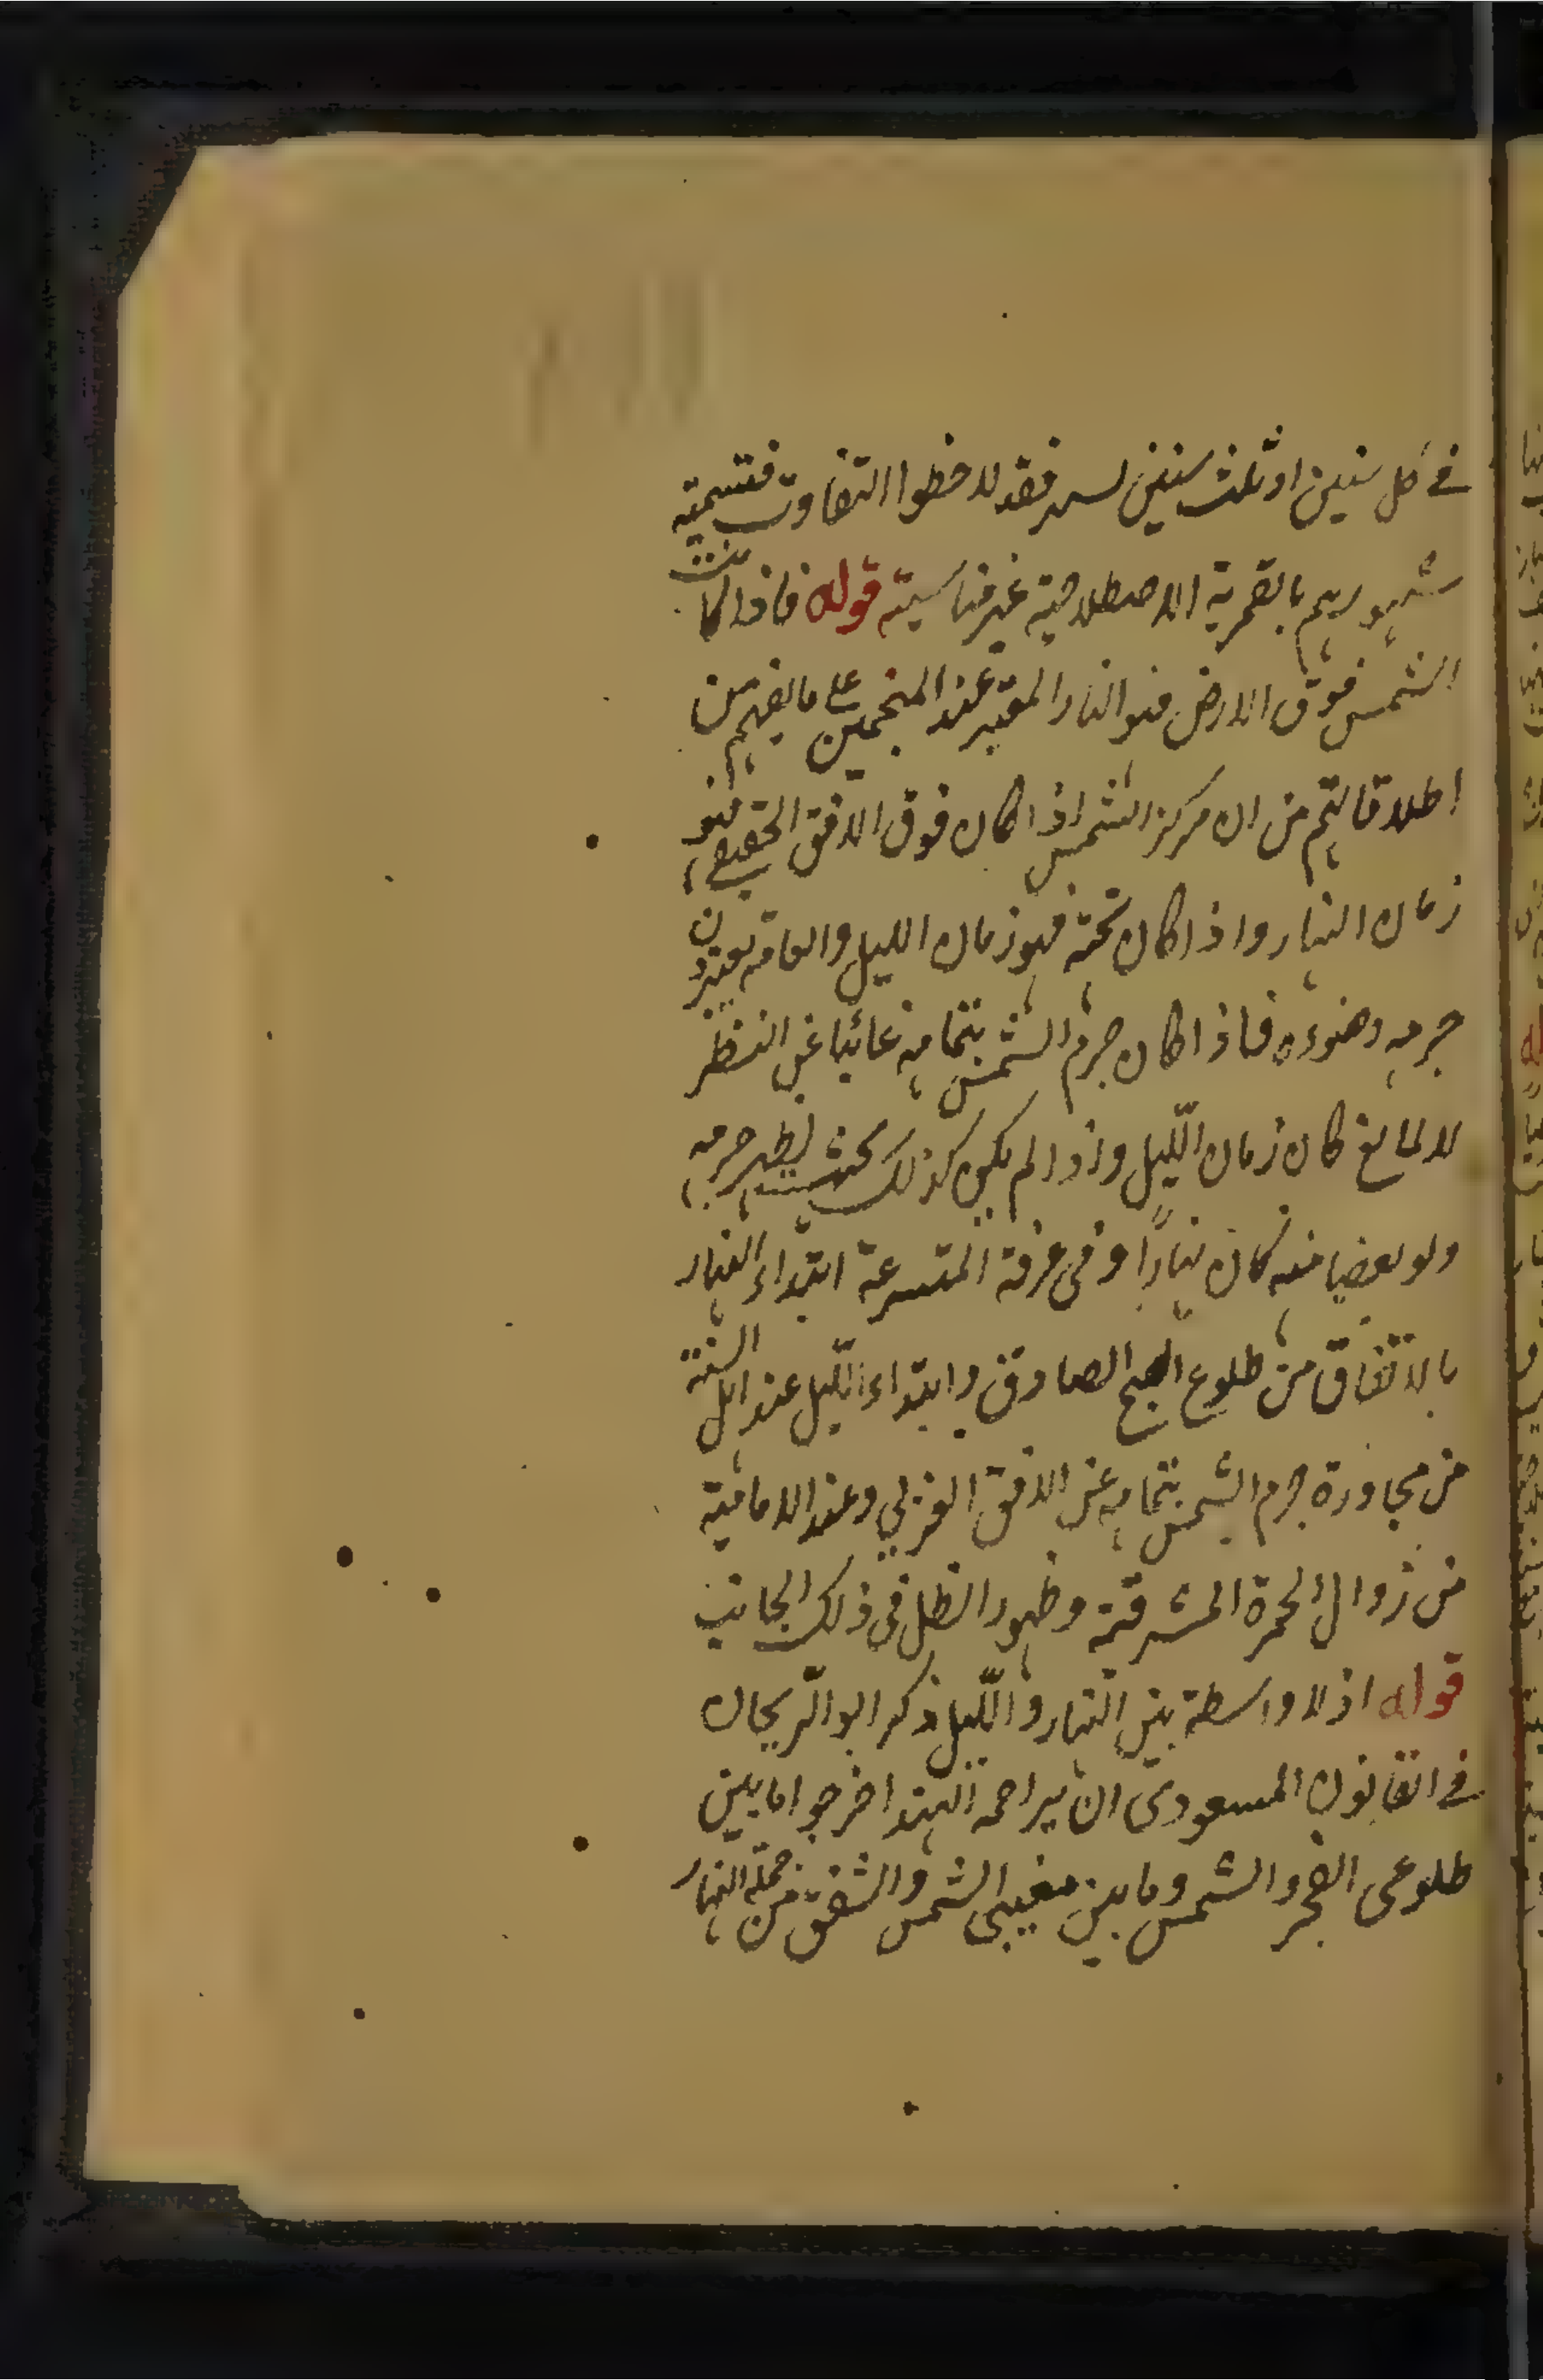 في كل سنين او ثلث سنين فقد لاحظوا التفاوت فتسميته
شهورهم بالقمرية الاصطلاحية غير مناسبة قوله فاذا كانت
الشمس فوق الارض فهو النهار المعتبر عند المنجمين على ما يفهم من
اطلاقاتهم من ان مركز الشمس اذا كان فوق الافق الحقيقي فهو
زمان النهار واذا كان تحته فهو زمان الليل والعامة يعتبرون
جرمه وضوءه فاذا كان جرم الشمس بتمامه غائبا عن النظر
لا لمانع كان زمان اللّيل واذا لم يكن كذلك بحيث يظهر جرمه
ولو بعضا منه كان نهارًا وفي عرف المتشرعة ابتداء النهار
بالاتفاق من طلوع الصبح الصادق وابتداء اللّيل عند اهل السنة
من مجاوزة جرم الشمس بتمامه عن الافق الغربي وعند الامامية
من زوال الحمرة المشرقية وظهور الظل في ذلك الجانب
قوله اذ لا واسطة بين النهار واللّيل ذكر ابو الرّيحان
في القانون المسعودى ان براهمة الهند اخرجوا ما بين
طلوعى الفجر والشمس وما بين مغيبى الشمس والشفق من جملة النهار